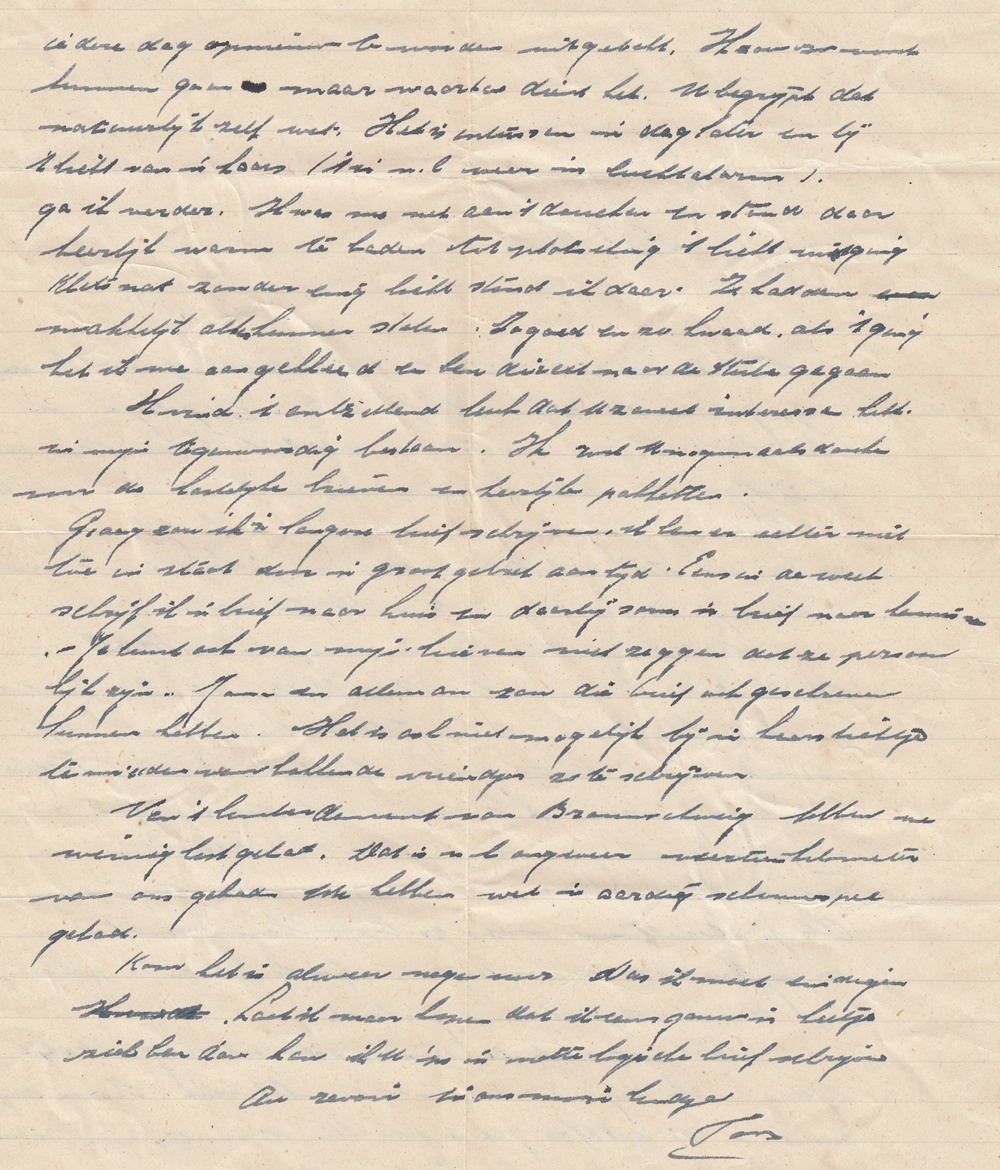 iedere dag opnieuw te worden uitgebuit. Ik zou zo voort
kunnen gaan maar waartoe dient het. U begrijpt dat
natuurlijk zelf wel. Het is intussen 'n dag later en bij
't licht van 'n kaars ('t is n.l. weer in luchtalarm).
ga ik verder. Ik was me net aan 't douchen en stond daar
heerlijk warm te baden tot plotseling 't licht uitging
Kletsnat zonder enig licht stond ik daar. Ze hadden
makkelijk alles kunnen stelen. Zo goed en zo kwaad als 't ging
heb ik me aangekleed en ben direct naar de Stube gegaan
Ik vind 't ontzettend leuk dat U zoveel interesse hebt
in mijn tegenwoordig bestaan. Ik wil U nogmaals danken
voor de hartelijke brieven en heerlijke pakketten.
Graag zou ik 'n langere brief schrijven, ik ben er echter niet
toe in staat door 'n groot gebrek aan tijd. Eens in de week
schrijf ik 'n brief naar huis en daarbij soms 'n brief naar
.- Je kunt ook van mijn brieven niet zeggen dat ze persoon
lijk zijn. Jan en alleman zou die brief ook geschreven
kunnen hebben. Het is ook niet mogelijk bij 'n kaarslichtje
te midden van vriendjes zo te schrijven
Van 't bombardement van Braunschweig hebben we
weinig last gehad. Dat is n.l. ongeveer veertien kilometer
van ons gelegen. We hebben wel 'n aardig schouwspel
gehad.
Kom het is alweer negen uur. Dus ik moet eindigen
Laat ik maar hopen dat ik eens gauw 'n beetje
ziek ben dan kan ik U 'ns 'n nette logische brief schrijven
Au revoir